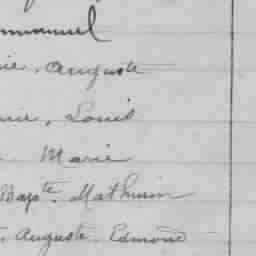 mmanuel
ie, Auguste
rie, Louis
Marie
Marg^te. Mathurin
Auguste Edmond